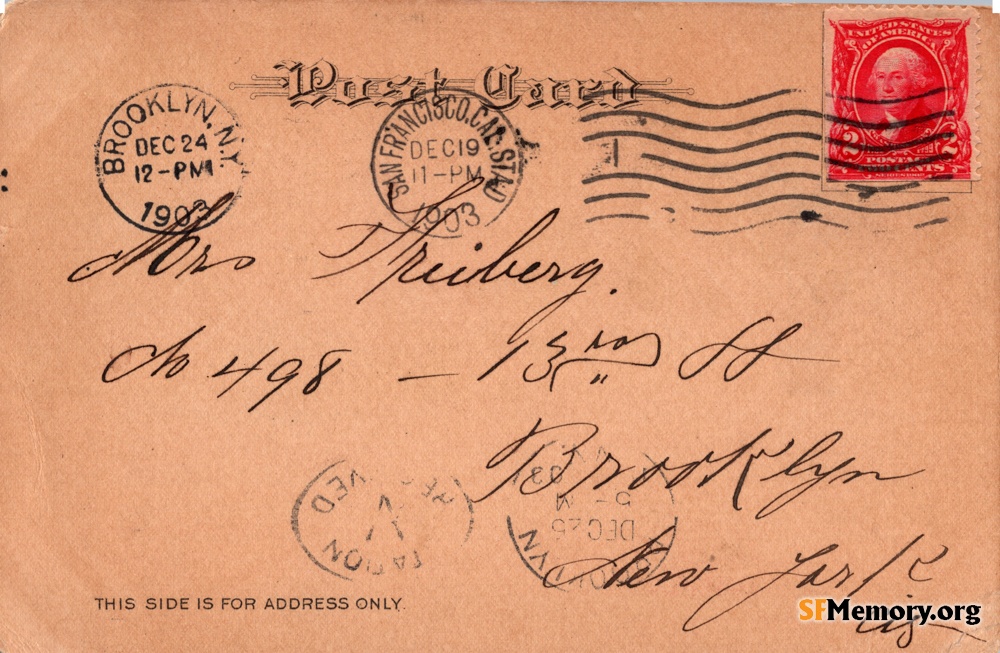 Post Card
UNITED STATES
OF AMERICA
2 2
POSTAGE
TWO CENTS
BROOKLYN, N.Y.
DEC 24
12-PM
1903
SAN FRANCISCO, CAL. STA. D
DEC 19
11-PM
1903
Mrs Freiberg.
No 498 — 13rd St
Brooklyn
New York
STATION V
RECEIVED
BROOKLYN
DEC 25
5-
M
03
THIS SIDE IS FOR ADDRESS ONLY.
SFMemory.org